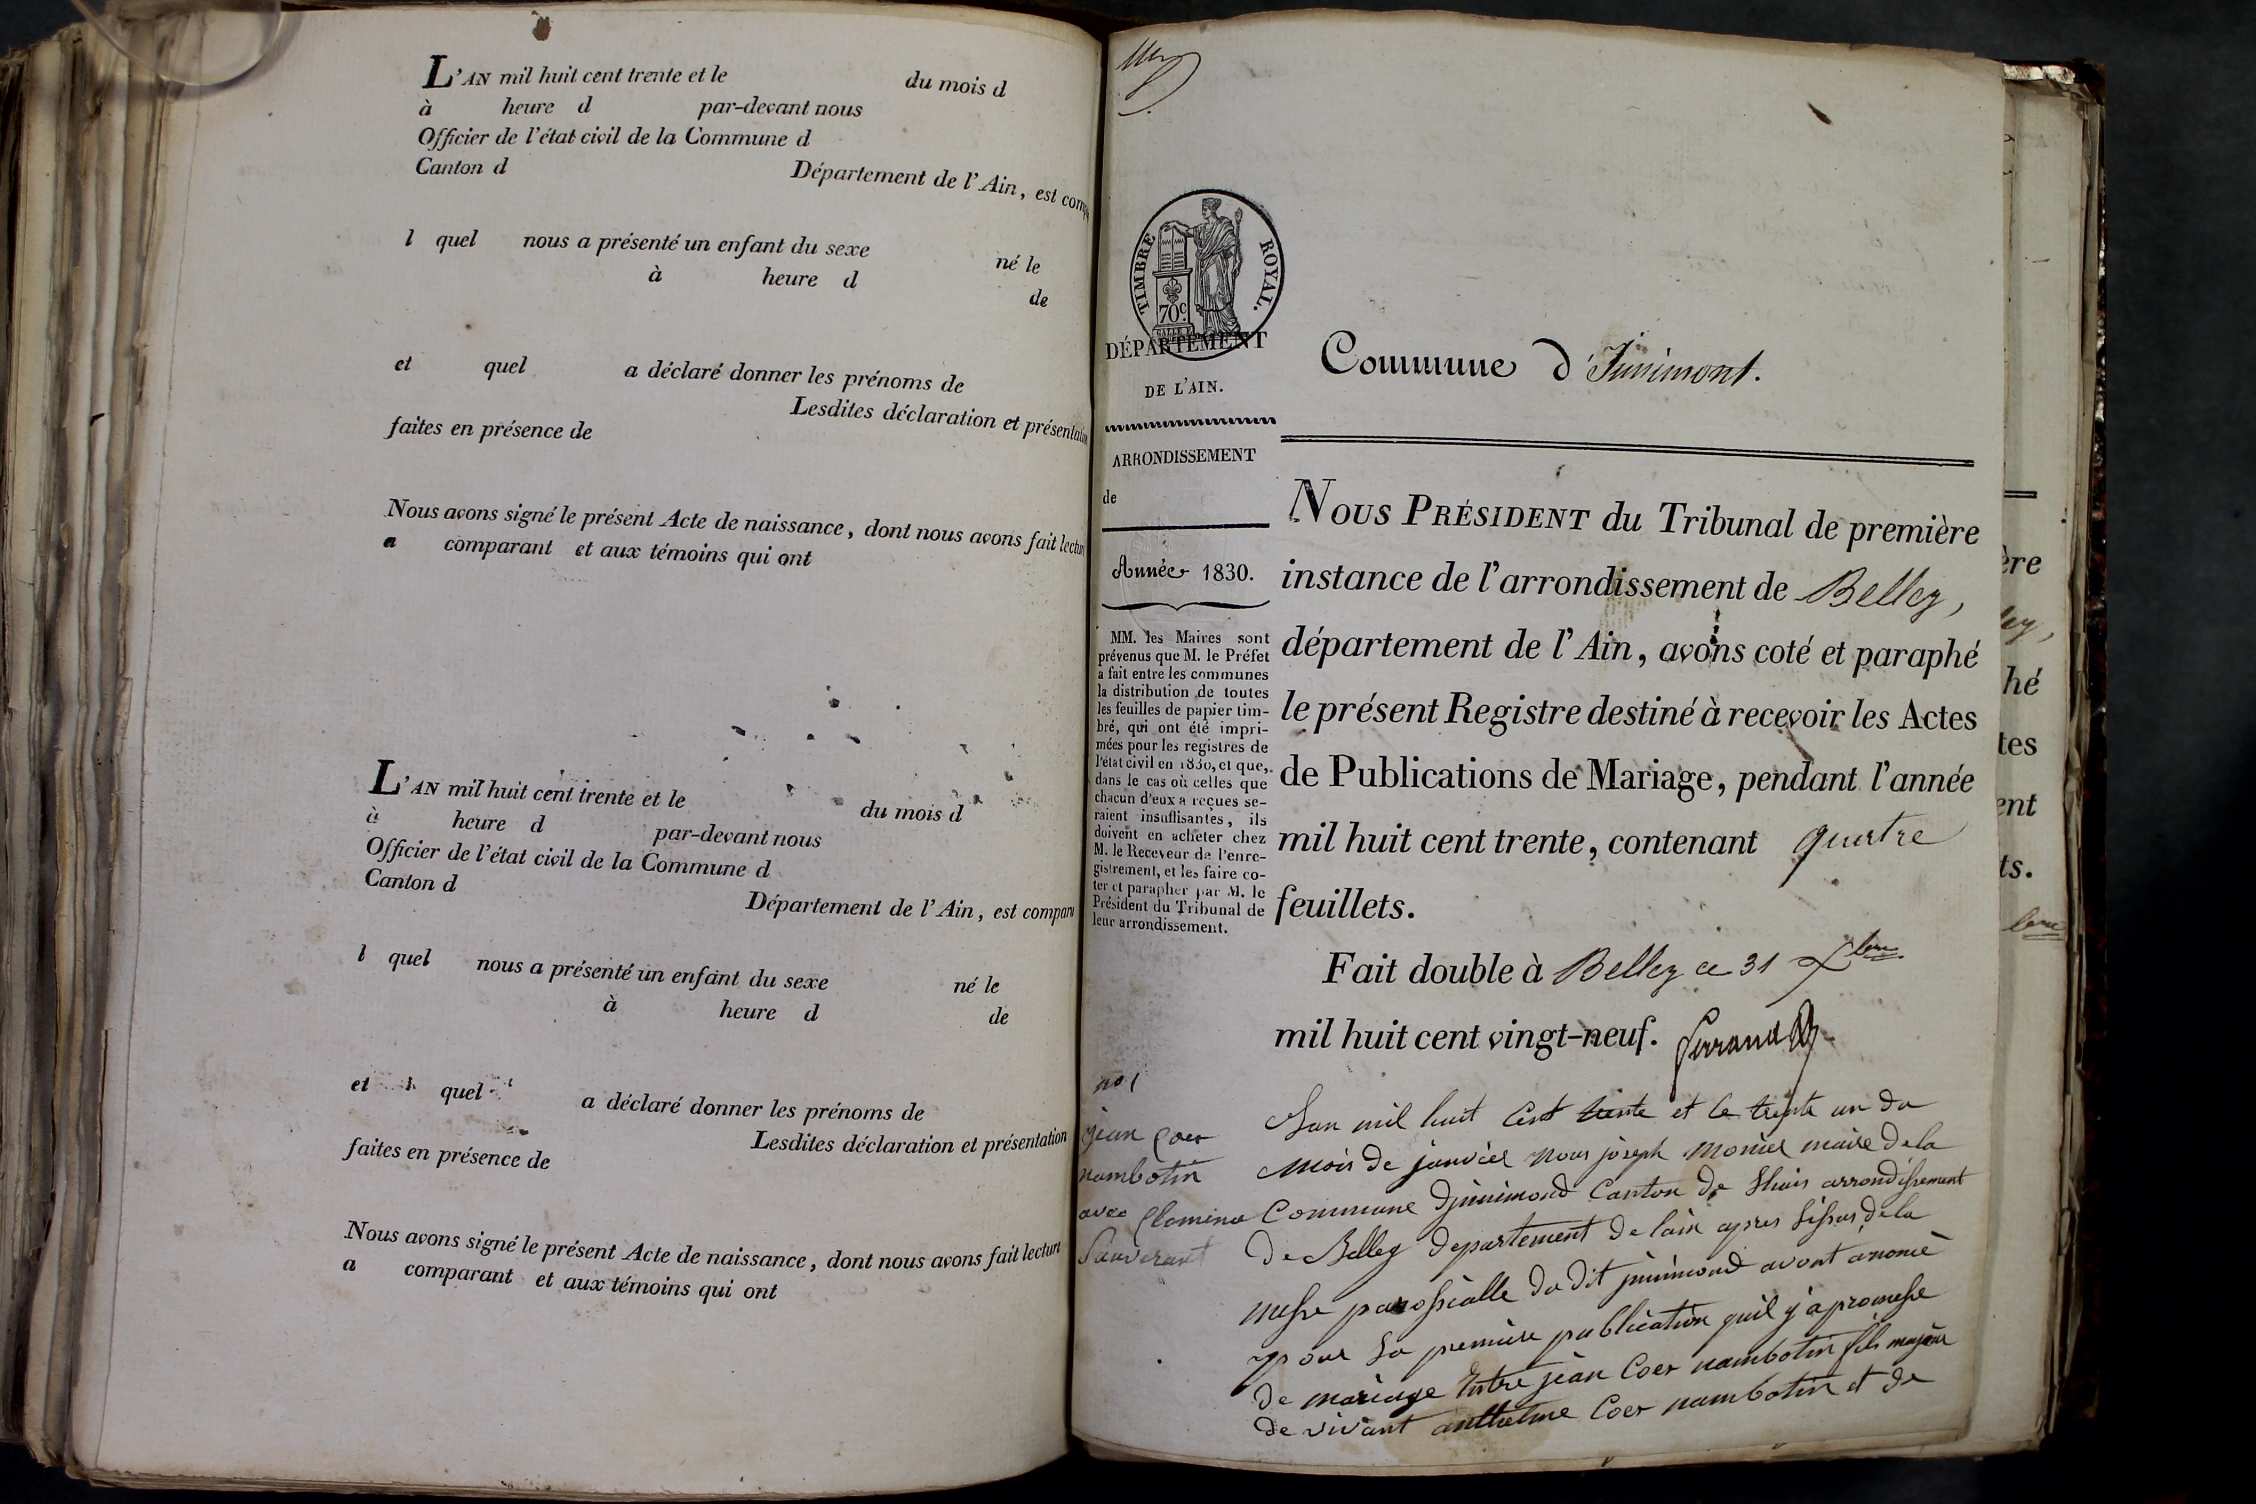 L'AN mil huit cent trente et le du mois d
à heure d par-devant nous
Officier de l'état civil de la Commune d
Canton d Département de l'Ain, est comp
l quel nous a présenté un enfant du sexe né le
à heure d de
et quel a déclaré donner les prénoms de
Lesdites déclaration et présentation
faites en présence de
Nous avons signé le présent Acte de naissance, dont nous avons fait lectur
a comparant et aux témoins qui ont
L'AN mil huit cent trente et le du mois d
à heure d par-devant nous
Officier de l'état civil de la Commune d
Canton d Département de l'Ain, est comparu
l quel nous a présenté un enfant du sexe né le
à heure d de
et l quel a déclaré donner les prénoms de
Lesdites déclaration et présentation
faites en présence de
Nous avons signé le présent Acte de naissance, dont nous avons fait lecture
a comparant et aux témoins qui ont
TIMBRE ROYAL.
70c.
DÉPARTEMENT
DE L'AIN.
ARRONDISSEMENT
de
Année 1830.
MM. les Maires sont
prévenus que M. le Préfet
a fait entre les communes
la distribution de toutes
les feuilles de papier tim-
bré, qui ont été impri-
mées pour les registres de
l'état civil en 1830, et que,
dans le cas où celles que
chacun d'eux a reçues se-
raient insuffisantes, ils
doivent en acheter chez
M. le Receveur de l'enre-
gistrement, et les faire co-
ter et parapher par M. le
Président du Tribunal de
leur arrondissement.
Commune d'Innimont.
NOUS PRÉSIDENT du Tribunal de première
instance de l'arrondissement de Belley,
département de l'Ain, avons coté et paraphé
le présent Registre destiné à recevoir les Actes
de Publications de Mariage, pendant l'année
mil huit cent trente, contenant quatre
feuillets.
Fait double à Belley ce 31 Xbre
mil huit cent vingt-neuf. Ferrand
no 1
jean Coer
nambotin
avec
Lan mil huit Cent trente et le trente un du
mois de janvier nous joseph monier maire de la
Commune djnnimond Canton de Lhuis arrondissement
de Belley departement de lain apres lissus de la
messe parossialle du dit jnnimond avont anoncé
pour la premiere publication quil y a promesse
de mariage Entre jean Coer nambotin fils majeur
de vivant anthelme Coer nambotin et de
ère
ley,
hé
tes
ent
ts.